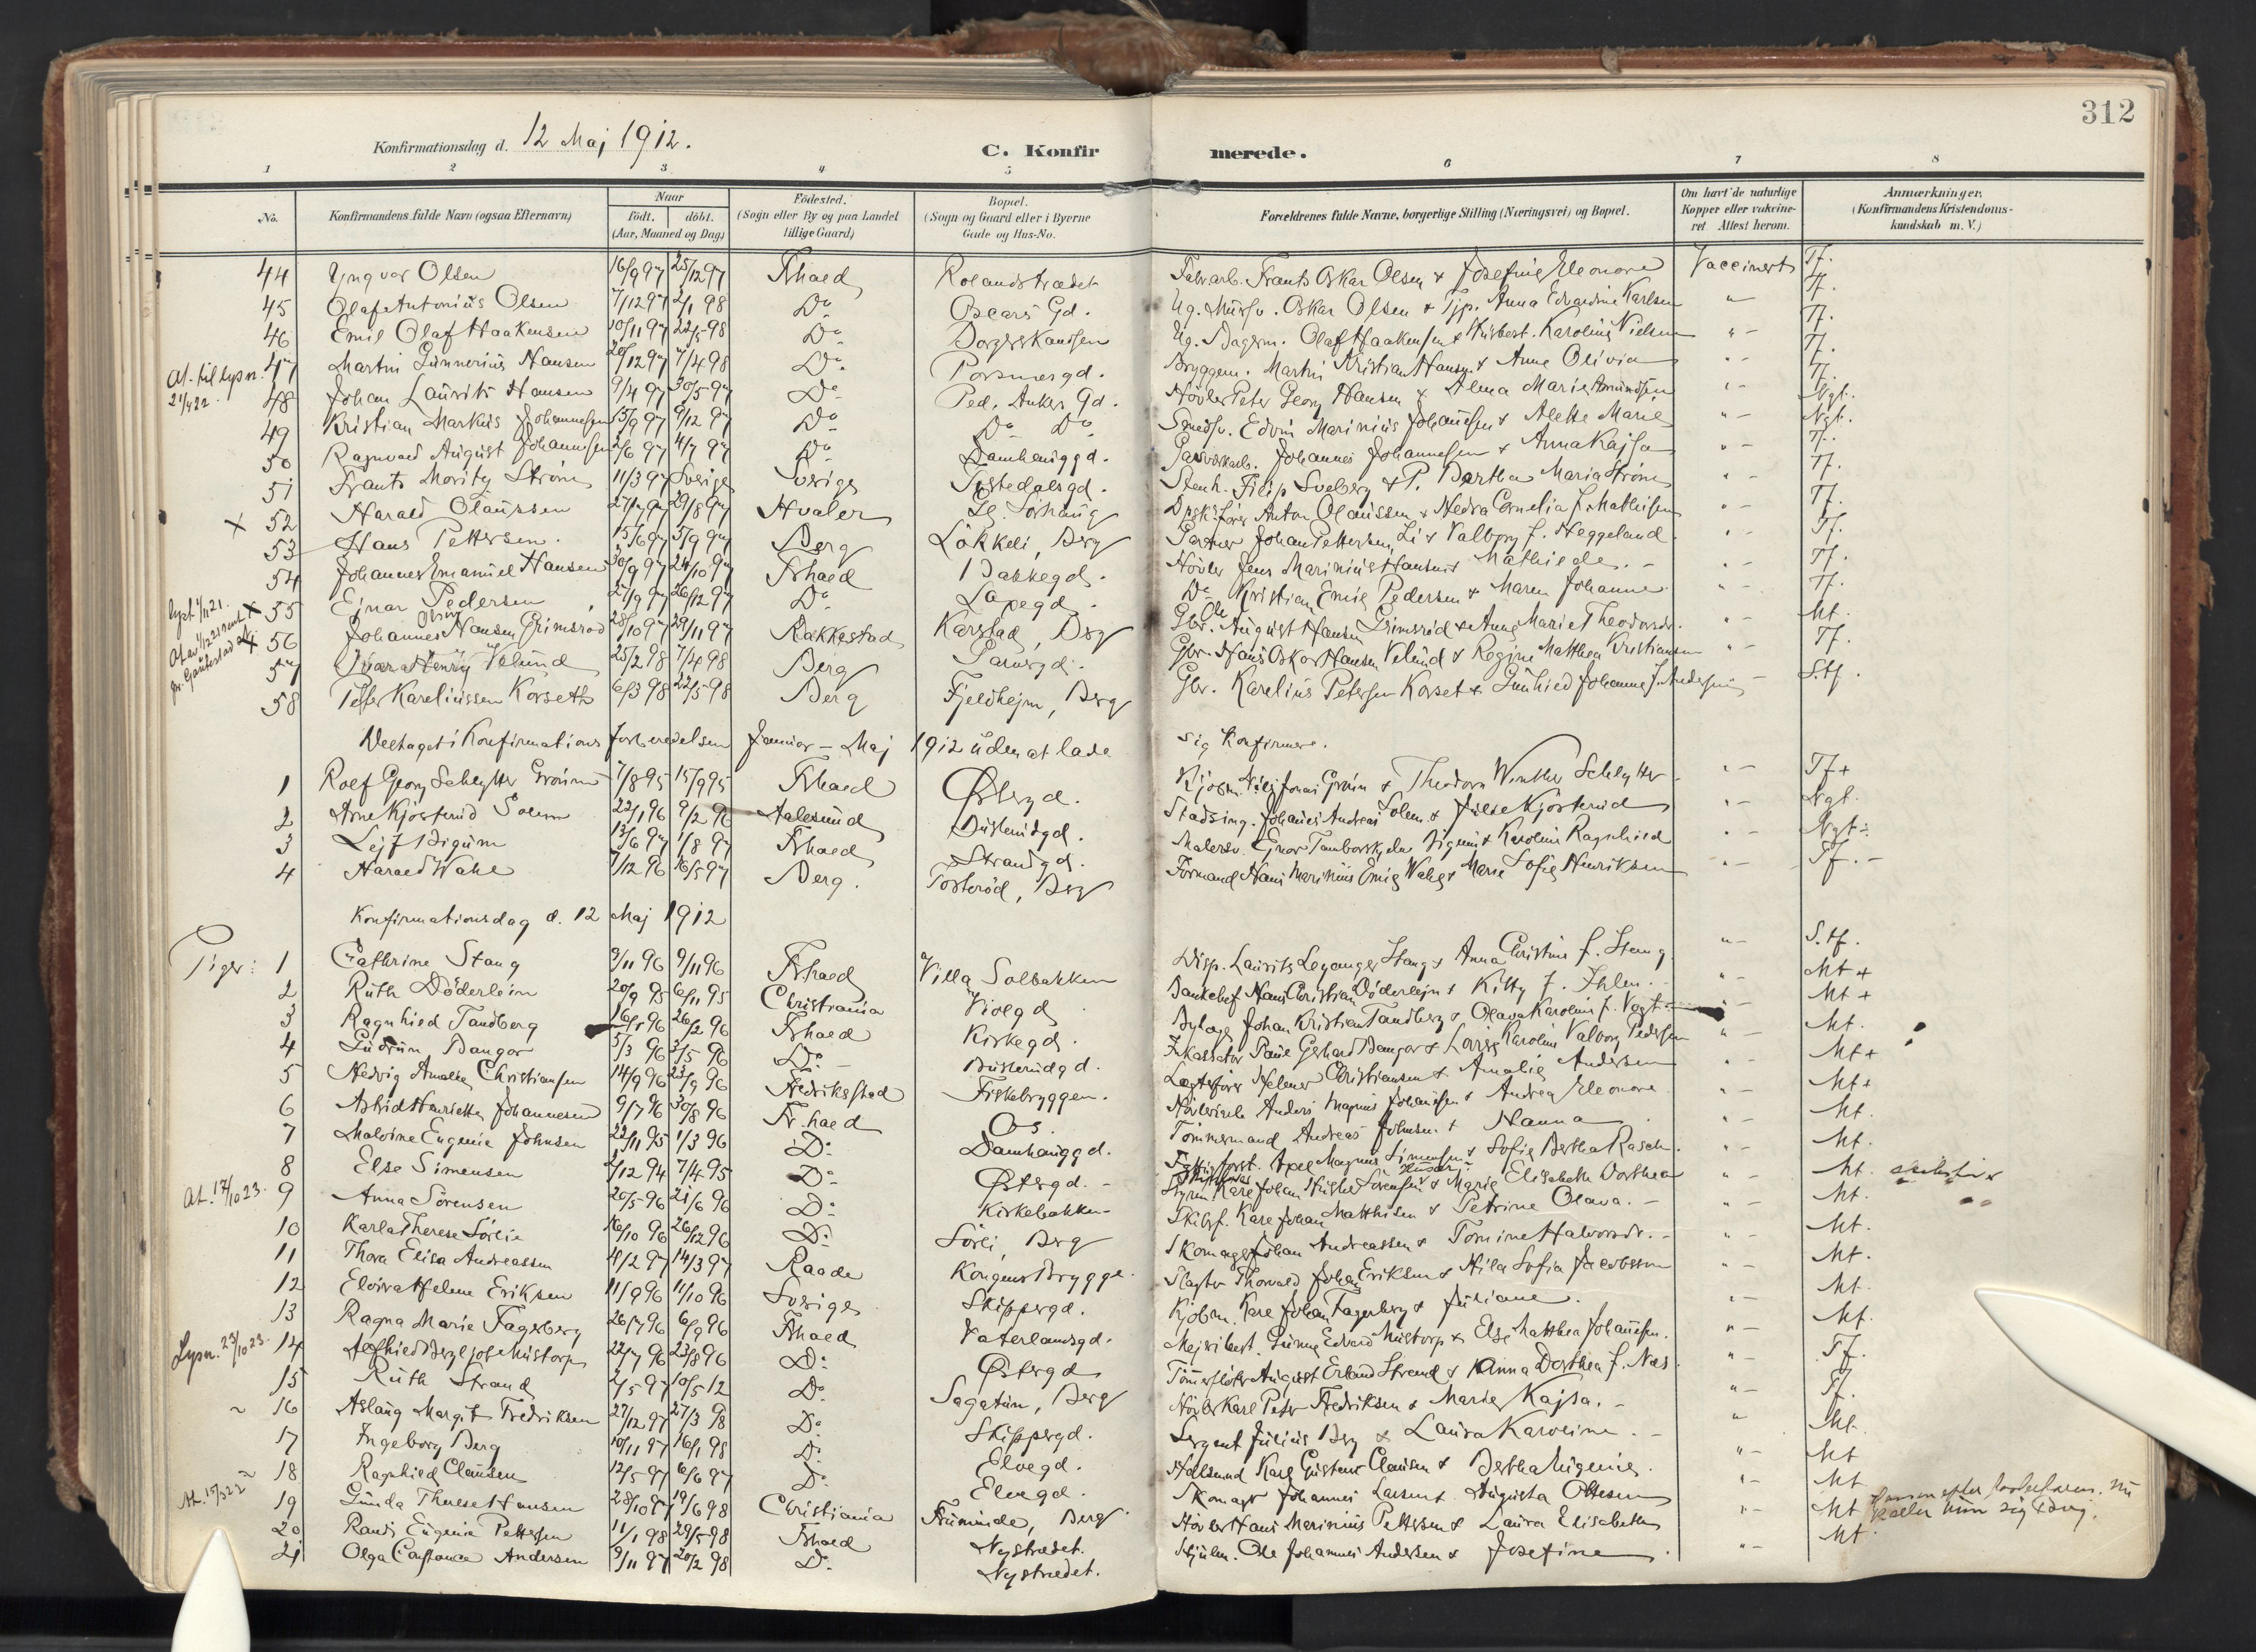 312
Konfirmationsdag d. 12 Maj 1912. C. Konfirmerede.
1 2 3 4 5 6 7 8
No. Konfirmandens fulde Navn (ogsaa Efternavn) Naar födt. döbt. (Aar, Maaned og Dag) Födested. (Sogn eller By og paa Landet tillige Gaard) Bopæl. (Sogn og Gaard eller i Byerne Gade og Hus-No. Forældrenes fulde Navne, borgerlige Stilling (Næringsvei) og Bopæl. Om havt de naturlige Kopper eller vakcineret Attest herom. Anmærkninger, (Konfirmandens Kristendomskundskab m. V.)
44 Yngvar Olsen 16/9 97 25/12 97 Frhald Rolandstrædet Frants Oskar Olsen & Josefine Eleonore Vaccinert Tf.
45 Olaf Antonius Olsen 7/12 97 2/1 98 Do Oscars Gd. Ug. Mursv. Oskar Olsen & Tjp. Anna Edvardine Karlsen " - Tf.
46 Emil Olaf Haakensen 10/11 97 22/5 98 Do Borgerkaussen Ug. Bagerm. Olaf Haakensen & Husbest. Karoline Nielsen " - Tf.
At. til lysn. 21/4 22. 47 Martin Gunnerius Hansen 20/12 97 7/4 98 Do Porsnesgd. Bryggem. Martin Kristian Hansen & Anne Olivia " - Tf.
48 Johan Laurits Hansen 9/4 97 30/5 97 Do Ped. Ankers Gd. Hövler Peter Georg Hansen & Alma Marie Amundsen " - Tf.
49 Kristian Markus Johannesen 13/9 97 9/12 97 Do Do Do Smedsv. Edvin Marinius Johansen & Alette Marie " - Ngt.
50 Ragnvald August Johannesen 2/6 97 4/7 97 Do Damhauggd. Johannes Johannesen & Anna Kajsa " - Tf.
51 Frants Moritz Ström 11/3 97 Sverige Sverige Tistedalsgd. Stenh. Filip Sveberg & P. Bertha Maria Ström " - Tf.
x 52 Harald Olaussen 27/7 97 29/8 97 Hvaler Lg. Sörhaug Anton Olaussen & Hedva Cornelia f. Mathisen " - Tf.
53 Hans Pettersen. 15/6 97 5/9 97 Berg Lökkeli, Berg Gartner Johan Pettersen, Li & Valborg f. Heggeland " - Tf.
54 Johannes Emanuel Hansen 30/9 97 24/10 97 Frhald Bakkegd. Hövler Jens Marinius Hansen & Mathilde. - " - Tf.
x 55 Ejnar Pedersen 27/9 97 26/12 97 Do Lavegd. Do Kristian Emil Pedersen & Maren Johanne " - Tf.
x 56 Johannes Hansen Grimsröd 28/10 97 29/11 97 Rakkestad Karstad, Berg Gbr. Ole August Hansen Grimsröd & Anne Marie Theodorsdr. " - Mt.
57 Ivar Henry Velund 25/2 98 7/4 98 Berg Garvergd. Gbr. Hans Oskar Hansen Velund & Regine Matthea Kristiansen " - Tf.
58 Peter Kareliussen Korseth 6/3 98 22/5 98 Berg Fjeldhejm, Berg Gbr. Karelius Petersen Korset & Gunhild Johanne f. Andersen " - S.tf.
Deltaget i Konfirmations Forberedelsen Januar - Maj 1912 uden at lade sig konfirmere.
1 Rolf Georg Schlytter Groünn 7/8 95 15/9 95 Frhald Östergd. Theodora Winther Schlytter " - Tf+
2 Arne Kjösterud Solem 22/1 96 9/2 96 Aalesund Busterudgd. Stadsing. Johannes Andreas Solem & Julie Kjösterud " - Ngt.
3 Lejf Bigum 13/6 97 1/8 97 Frhald Strandgd. Malersv. Ejnar Tamborskjelve Bigum & Karoline Ragnhild " - Ngt.
4 Harald Wahl 7/12 96 16/5 97 Berg. Torteröd, Berg Formand Hans Marinius Emil Wahl & Marie Sofie Henriksen " - Tf. -
Konfirmationsdag d. 12 Maj 1912
Piger: 1 Cathrine Stang 3/11 96 9/11 96 Frhald Villa Solbakken Disp. Laurits Leganger Stang & Anna Christine f. Stang " - S.tf.
2 Ruth Döderlein 20/9 95 6/11 95 Christiania Violgd. Bankchef Hans Christian Döderlejn & Kitty f. Ihlen. " - Mt +
3 Ragnhild Tandberg 16/1 96 26/2 96 Frhald Kirkegd. Bylæge Johan Kristian Tandberg & Olava Karoline f. Vogt " - Mt +
4 Gudrun Bangor 5/3 96 3/5 96 Do - Busterudgd. Inkassator Paul Gerhard Bangor & Lovise Karoline Valborg Pedersen " - Mt.
5 Hedvig Amalie Christiansen 14/9 96 23/9 96 Fredriksstad Fiskebryggen. Lægterfører Helmer Christiansen & Amalie Andersen " - Mt+
6 Astrid Henriette Johannesen 9/7 96 30/8 96 Fr.hald Os. Anders Magnus Johansen & Andrea Eleonore " - Mt+
7 Malvine Eugenie Johnsen 22/11 95 1/3 96 Do Damhauggd. Tömmermand Andreas Johnsen & Hanna " - Mt.
8 Else Simensen 2/12 94 7/4 95 Do Östergd. - Axel Magnus Simensen & Sofie Bertha Rasch. " - Mt.
At. 17/10 23. 9 Anna Sörensen 20/5 96 21/6 96 Do Kirkebakken Styrm. Karl Johan Sörensen & Marie Elisabeth Dorthea " - Mt.
10 Karla Therese Sörlie 16/10 96 26/12 96 Do Sörli, Berg Skibsf. Karl Johan Matthisen & Petrine Olava. - " - Mt.
11 Thora Elisa Andreassen 4/2 97 14/3 97 Raade Kongens Brygge. Skomager Johan Andreassen & Tomine Halvorsdr. - " - Mt.
12 Elvira Helene Eriksen 11/9 96 11/10 96 Sverige Skippergd. Slagter Thorvald Johan Eriksen & Hilda Sofia Jacobsson " - Mt.
13 Ragna Marie Fagerberg 26/7 96 6/9 96 Frhald Vaterlandsgd. Kjöbm. Karl Johan Fagerberg & Juliane. " - Mt.
Lysn. 23/10 23. 14 Alfhild Bergljot Mistorp 22/7 96 23/8 96 Do Östergd Mejeribest. Gunnar Edvard Mistorp & Else Matthea Johansen. " - Mt.
15 Ruth Strand 2/5 97 10/5 12 Do Sagatun, Berg Tömmerfløter August Erland Strand & Anna Dorthea f. Næs. " - Tf.
~ 16 Aslaug Margit Fredriksen 27/12 97 27/3 98 Do Skippergd. Hövler Karl Peter Fredriksen & Marie Kajsa. - " - Tf.
17 Ingeborg Berg 10/11 97 16/1 98 Do Elvegd. Sergent Julius Berg & Laura Karoline. - " - Mt.
18 Ragnhild Clausen 12/5 97 6/6 97 Do Elvegd. Karl Gustav Clausen & Bertha Eugenie. " - Mt
At. 15/3 22 19 Gunda Therese Hansen 28/10 97 19/6 98 Christiania Fruminde, Berg Skomager Johannes Larsen & Augusta Ottesen " - Mt
20 Randi Eugenie Pettersen 11/1 98 29/5 98 Frhald Nystrædet. Hövler Hans Marinius Pettersen & Laura Elisabeth " - Mt
21 Olga Constance Andersen 9/11 97 20/2 98 Do Nystrædet. Ole Johannes Andersen & Josefine. " - Mt